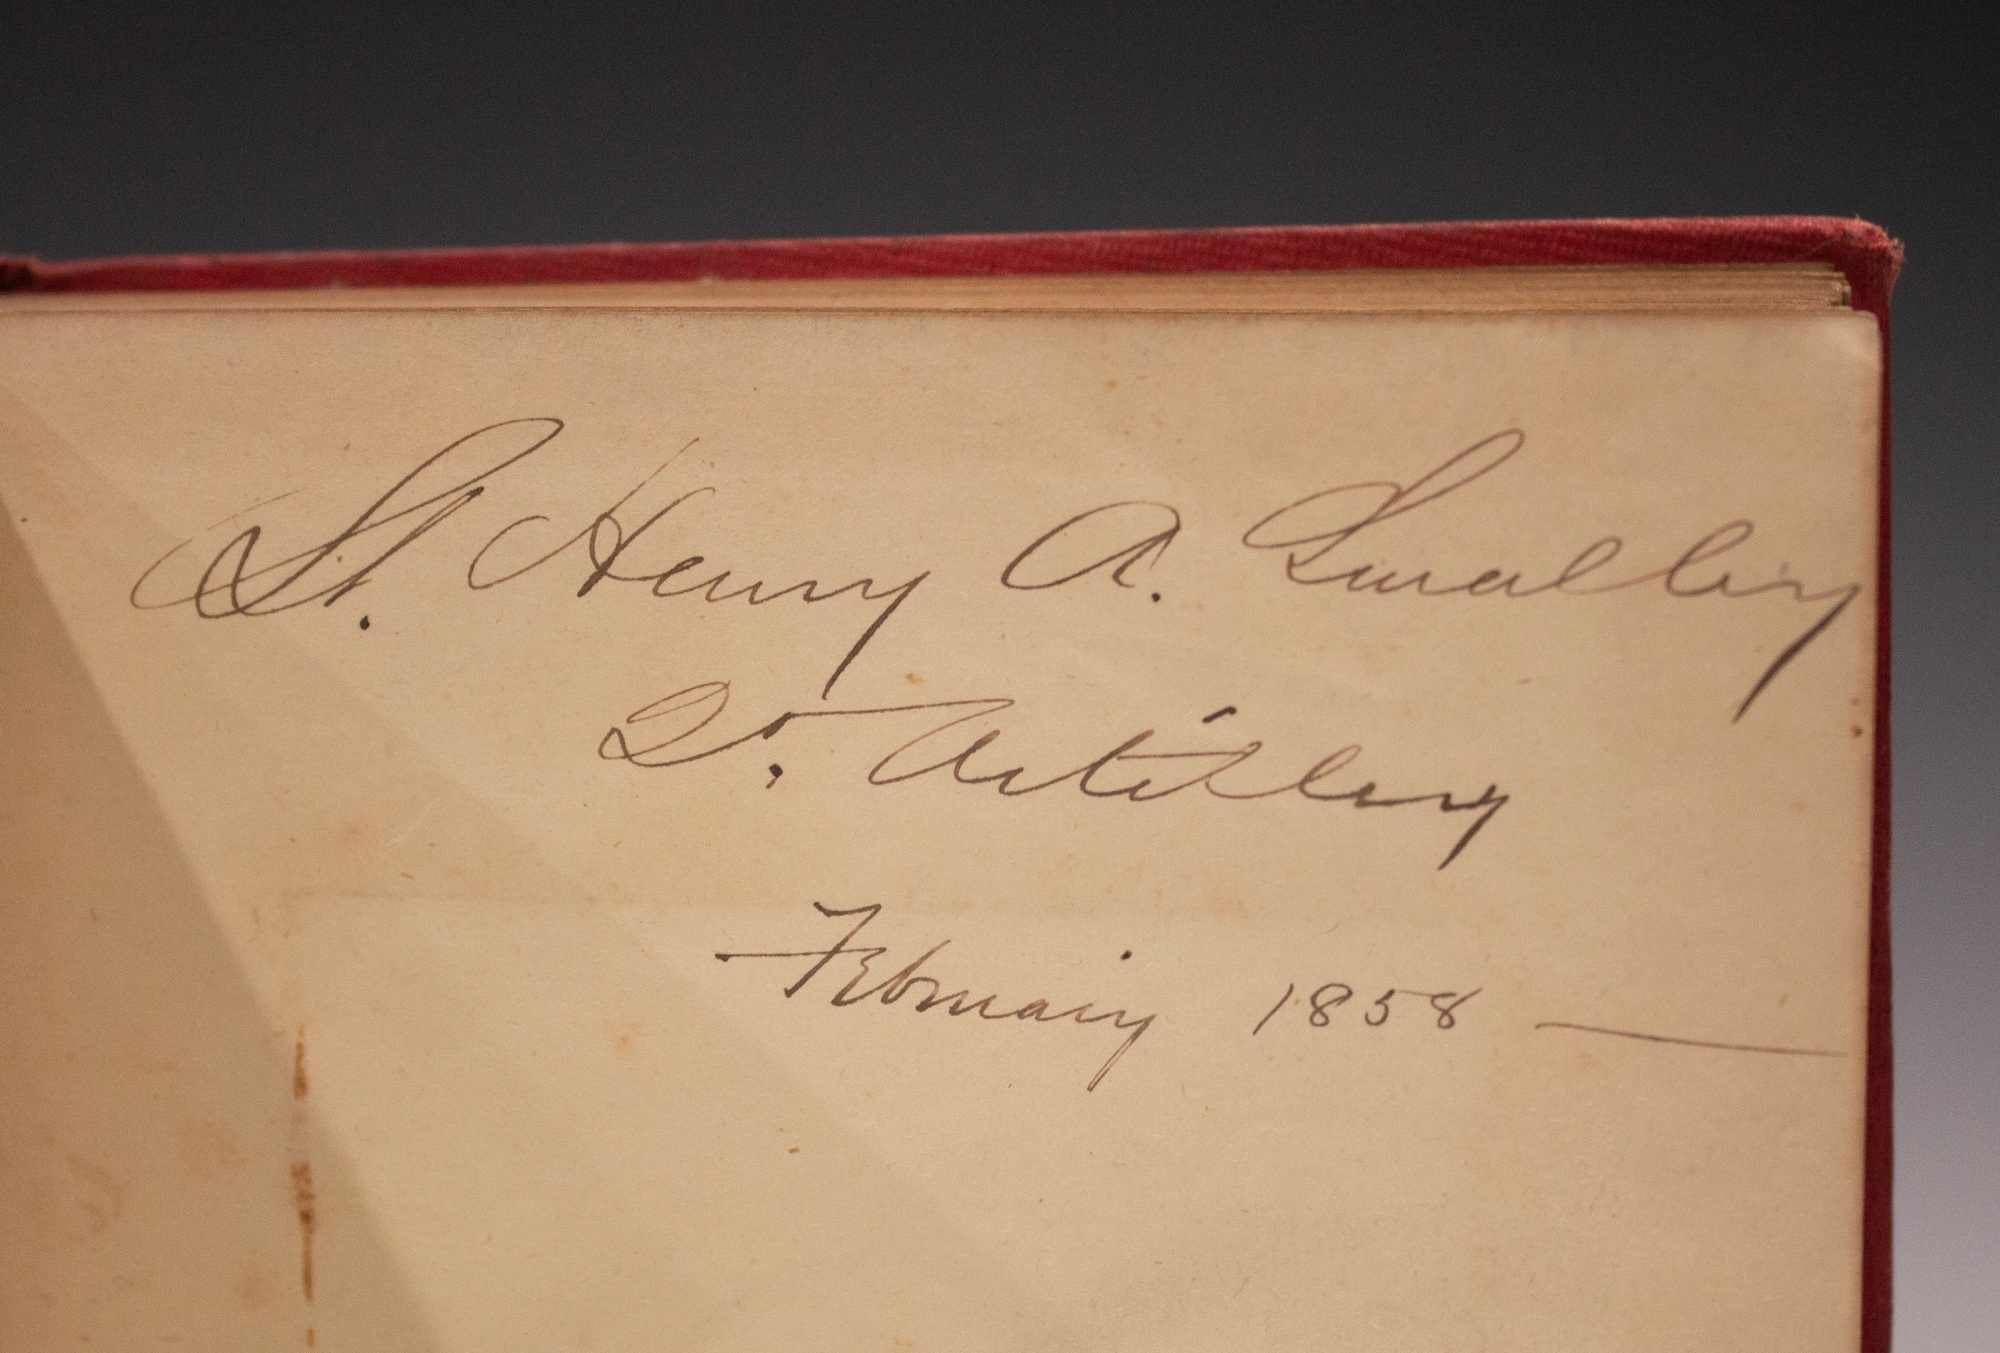 Lt. Henry A. Smalley
2d. Artillery
February 1858